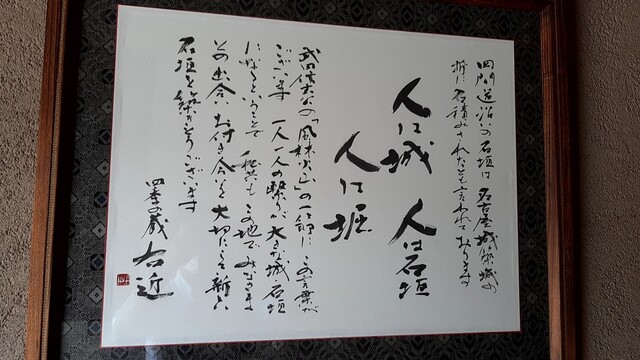 四間道沿いの石垣は 名古屋城築城の
折に石積みされたとも言われております
人は城 人は石垣
人は堀
武田信玄公の「風林火山」の一節に この言葉が
ございます 一人一人の繋りが 大きな城 石垣
になるということで 私共も この地で みなさま
との出会い お付き合いを 大切にして
石垣を築き
ございます
四季の蔵 右近